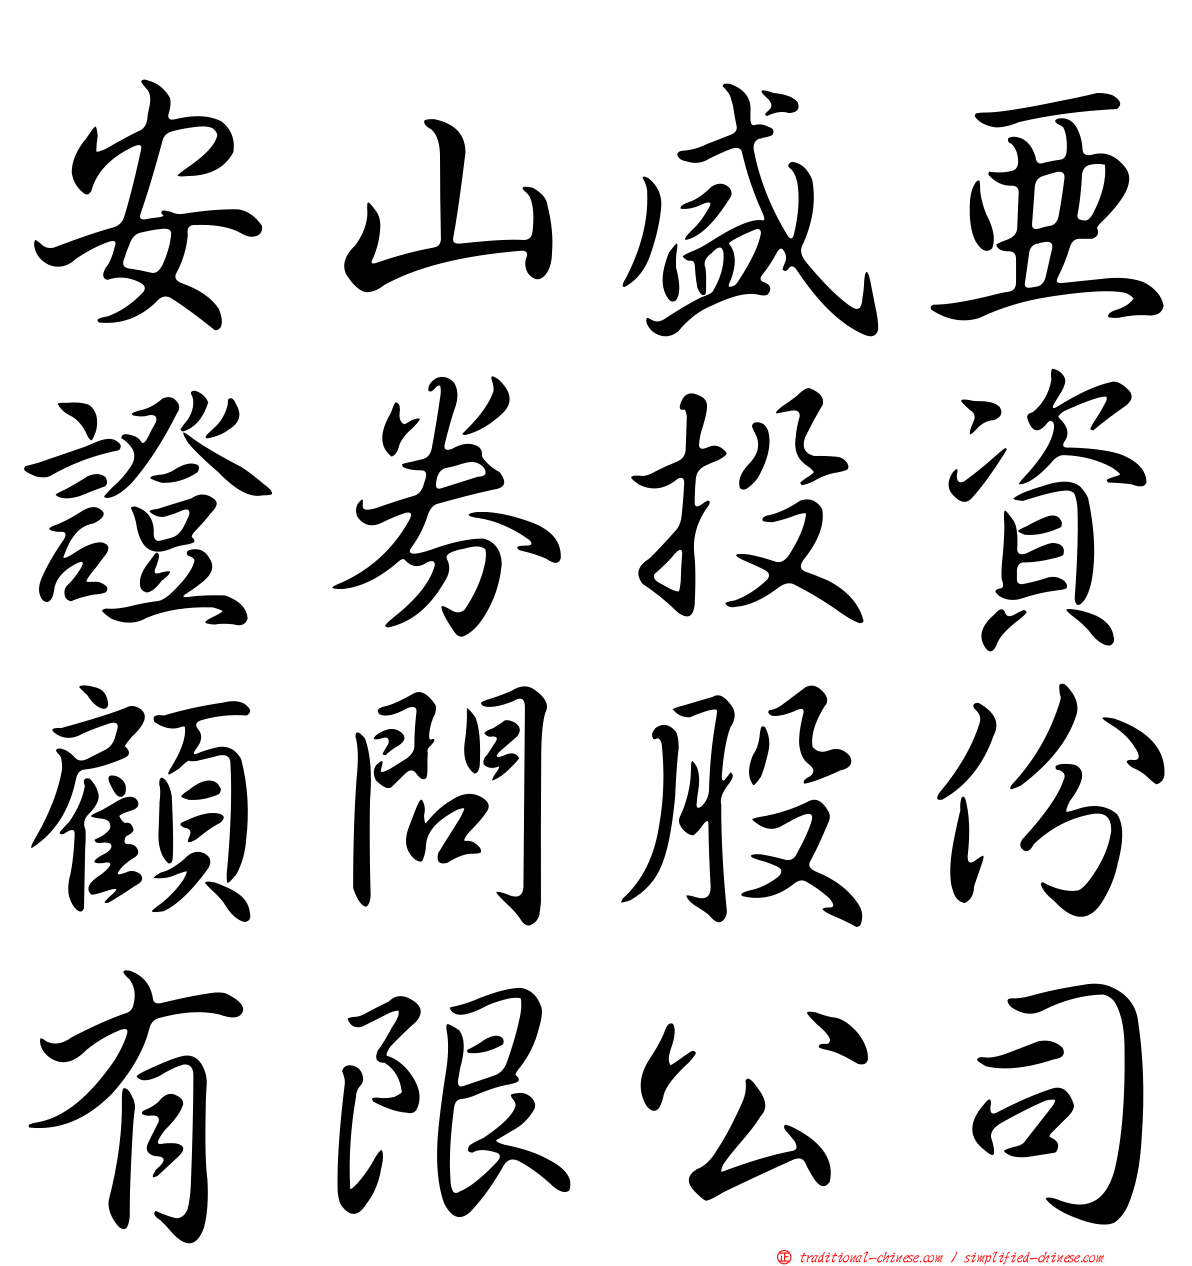 安山盛亜
證券投資
顧問股份
有限公司
㊣ traditional-chinese.com / simplified-chinese.com